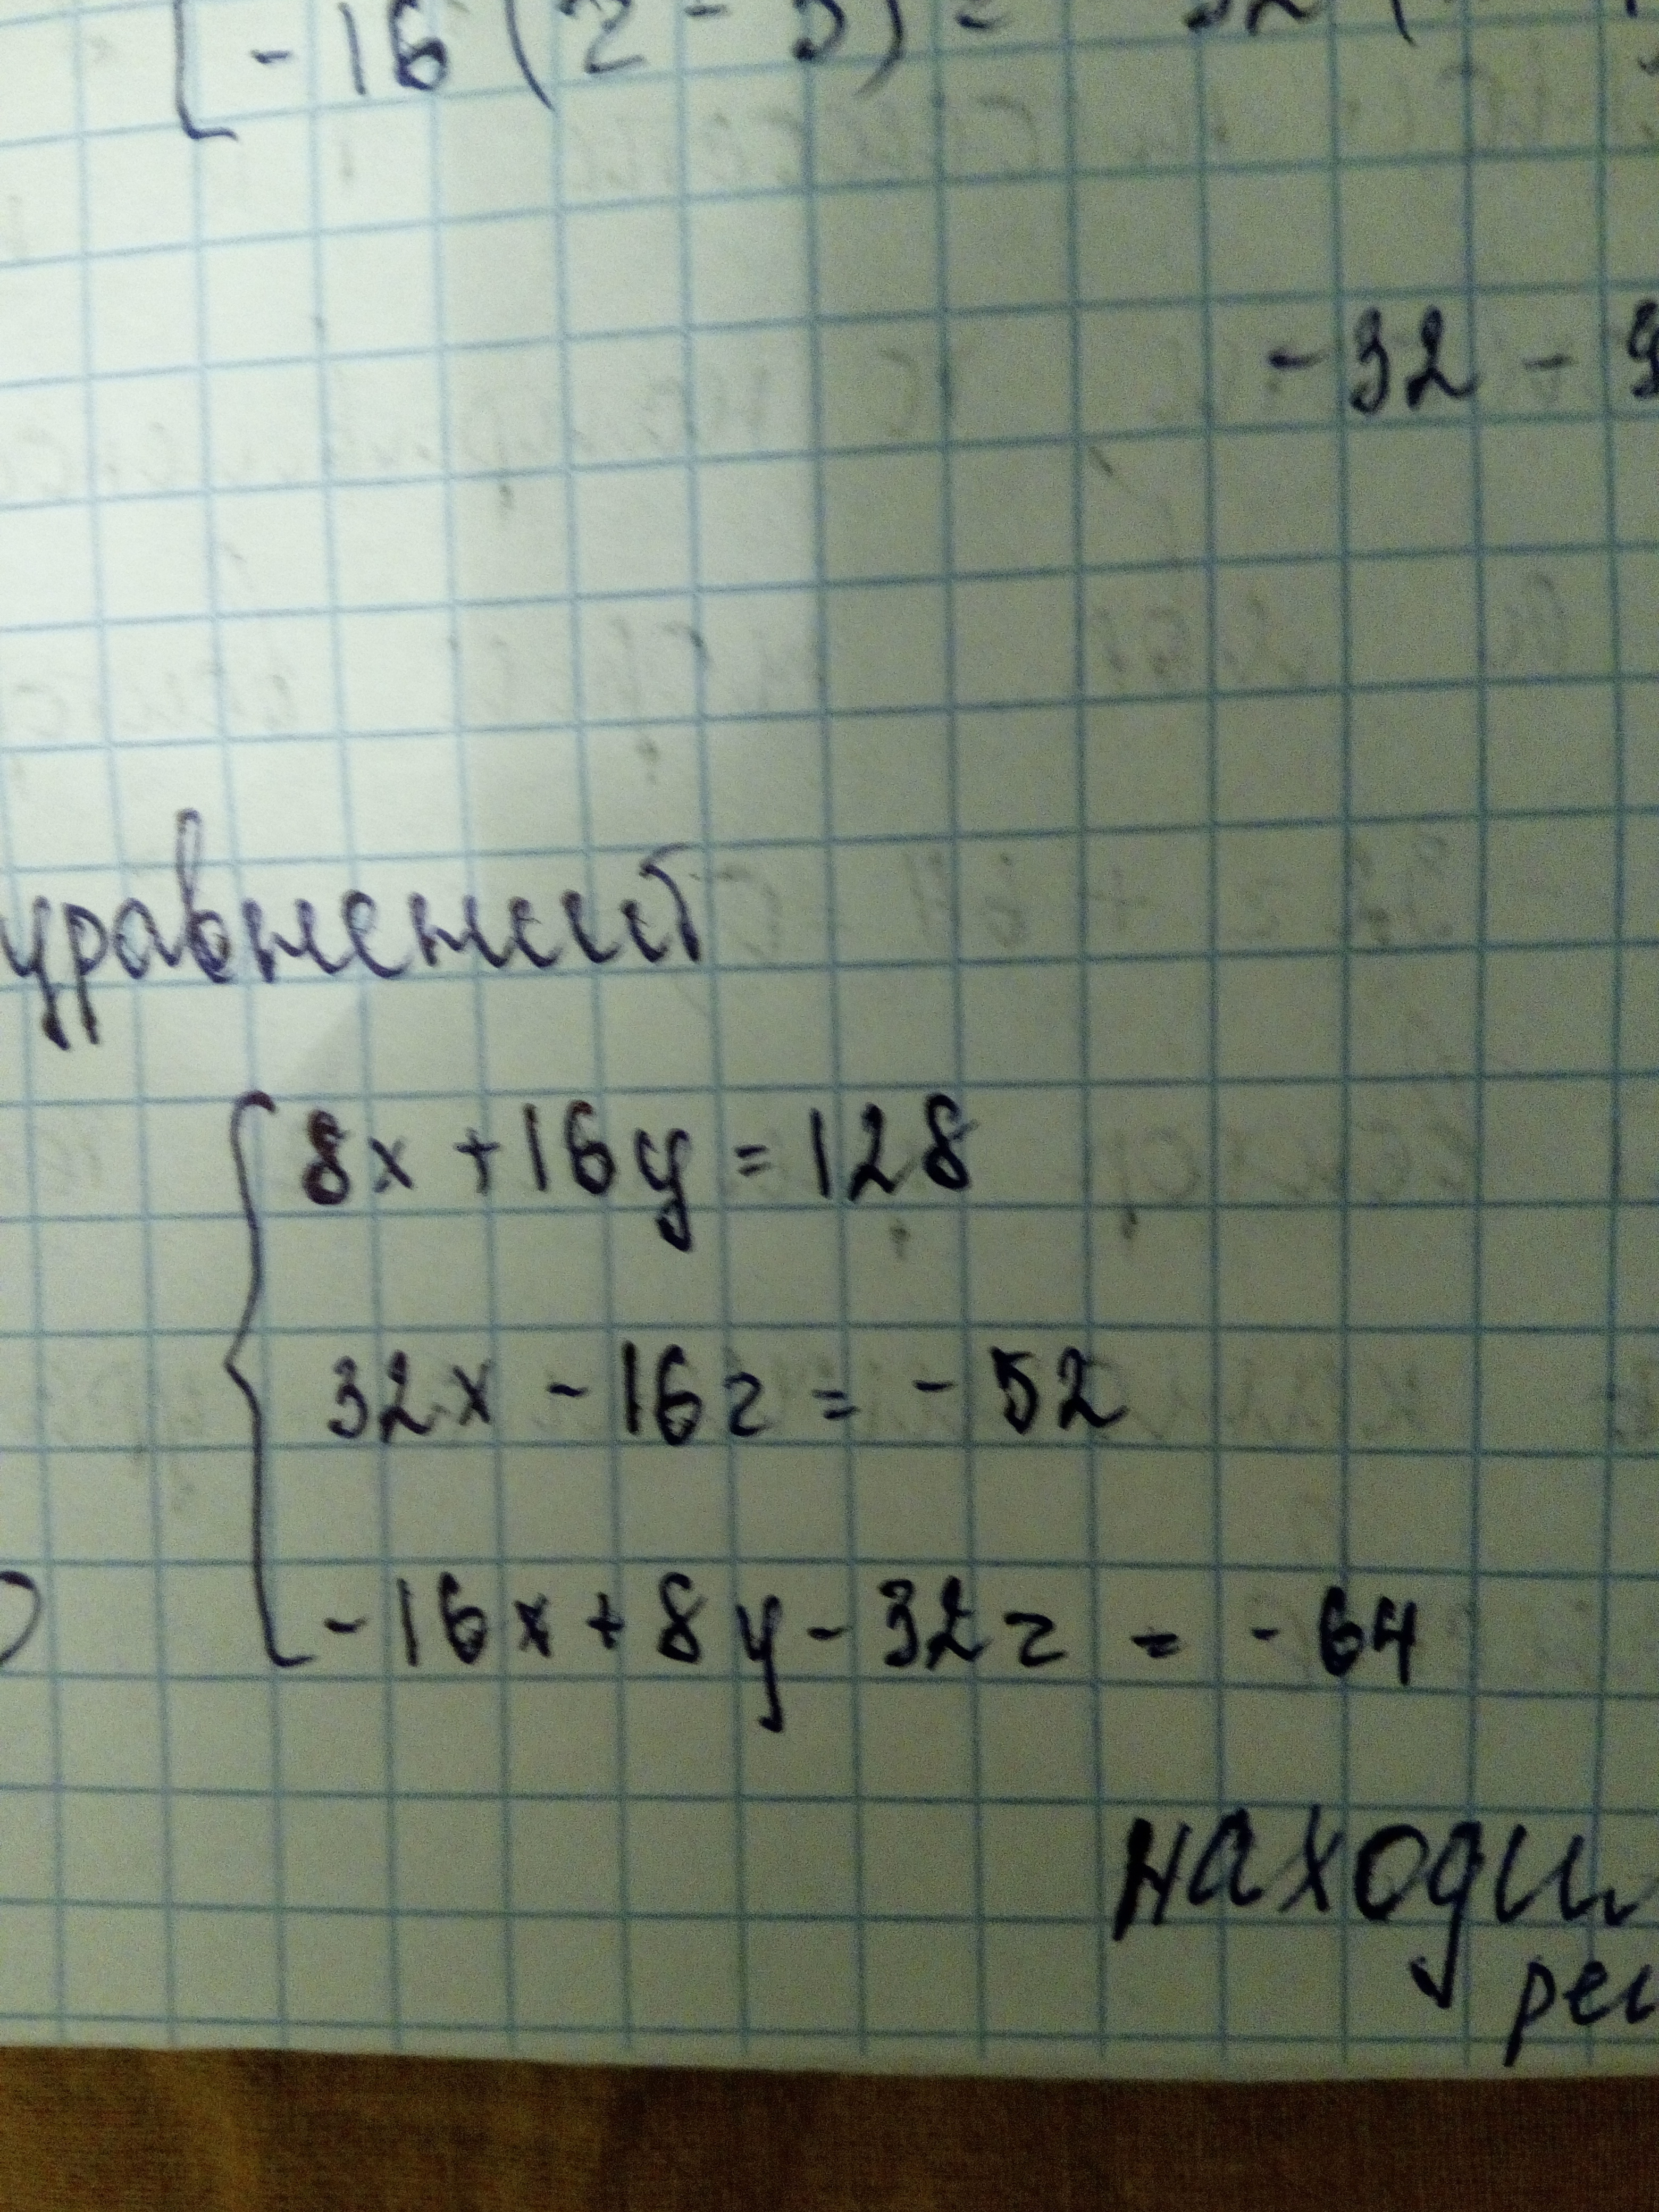 -16(z-5)=-32(
-32-
уравнений
8x+16y=128
32x-16z=-52
-16x+8y-32z=-64
находи
реш